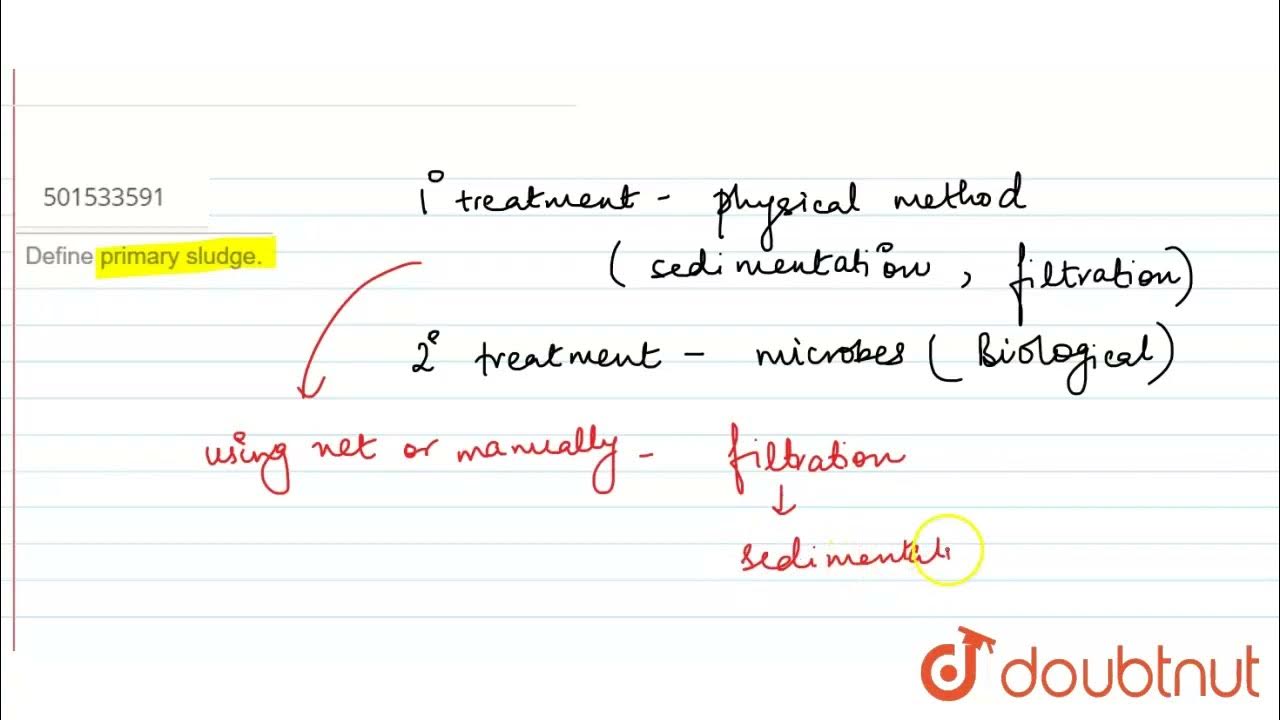 501533591
Define primary sludge.
1° treatment - physical method
(sedimentation, filtration)
2° treatment - microbes (Biological)
using net or manually - filtration
↓
sedimentati
doubtnut